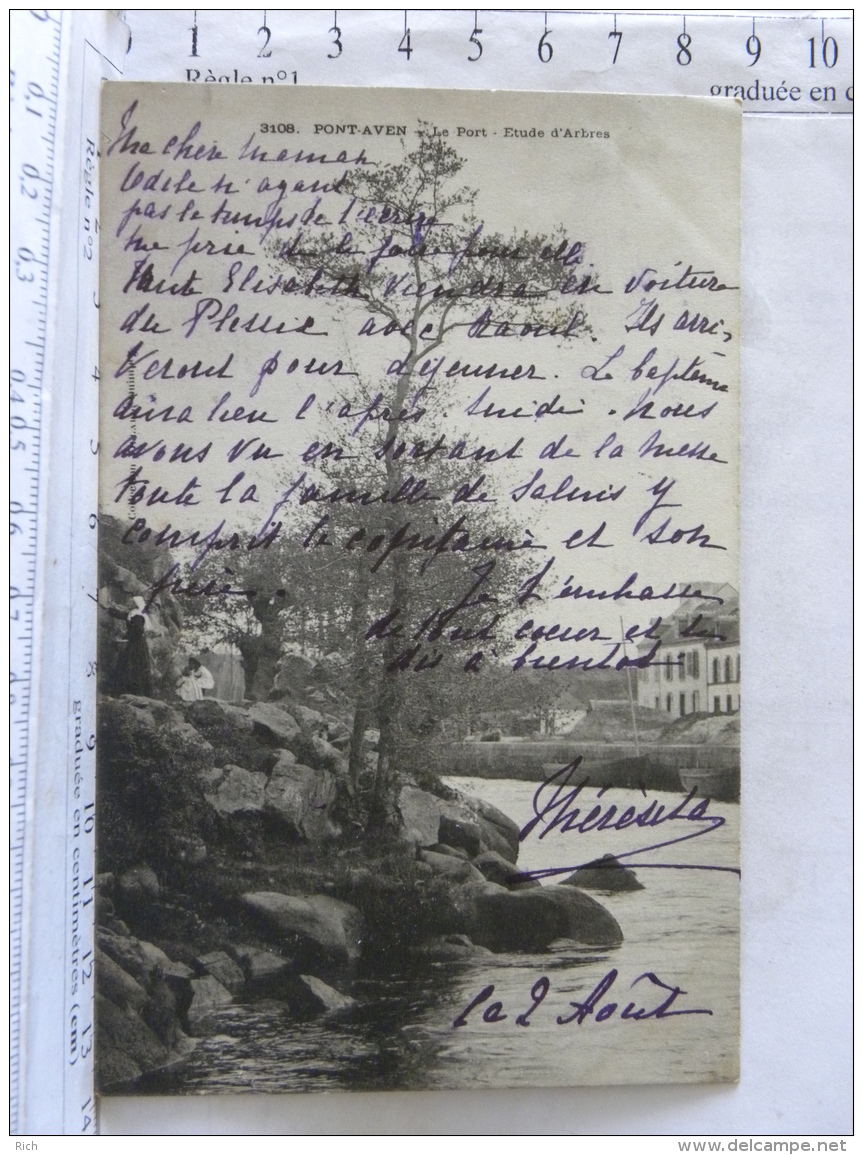 0 1 2 3 4 5 6 7 8 9 10
Règle n°1
graduée en c
0.1 0.2 0.3
Règle n°2
3 4 5 6 7 8 9 10 11 12 13 14
graduée en centimètres (cm)
3108. PONT-AVEN - Le Port - Etude d'Arbres
Ma chère Maman
Odile n'ayant
pas le temps de t'écrire
me prie de le faire pour elle.
Tante Elisabeth viendra en voiture
du Plessix avec Raoul. Ils arri-
veront pour déjeuner. Le baptême
aura lieu l'après-midi. Nous
avons vu en sortant de la messe
toute la famille de Salnis y
comprit le capitaine et son
frère. Je t'embrasse
de tout coeur et te
dis à bientôt
Thérésita
Le 2 Août
Rich
www.delcampe.net